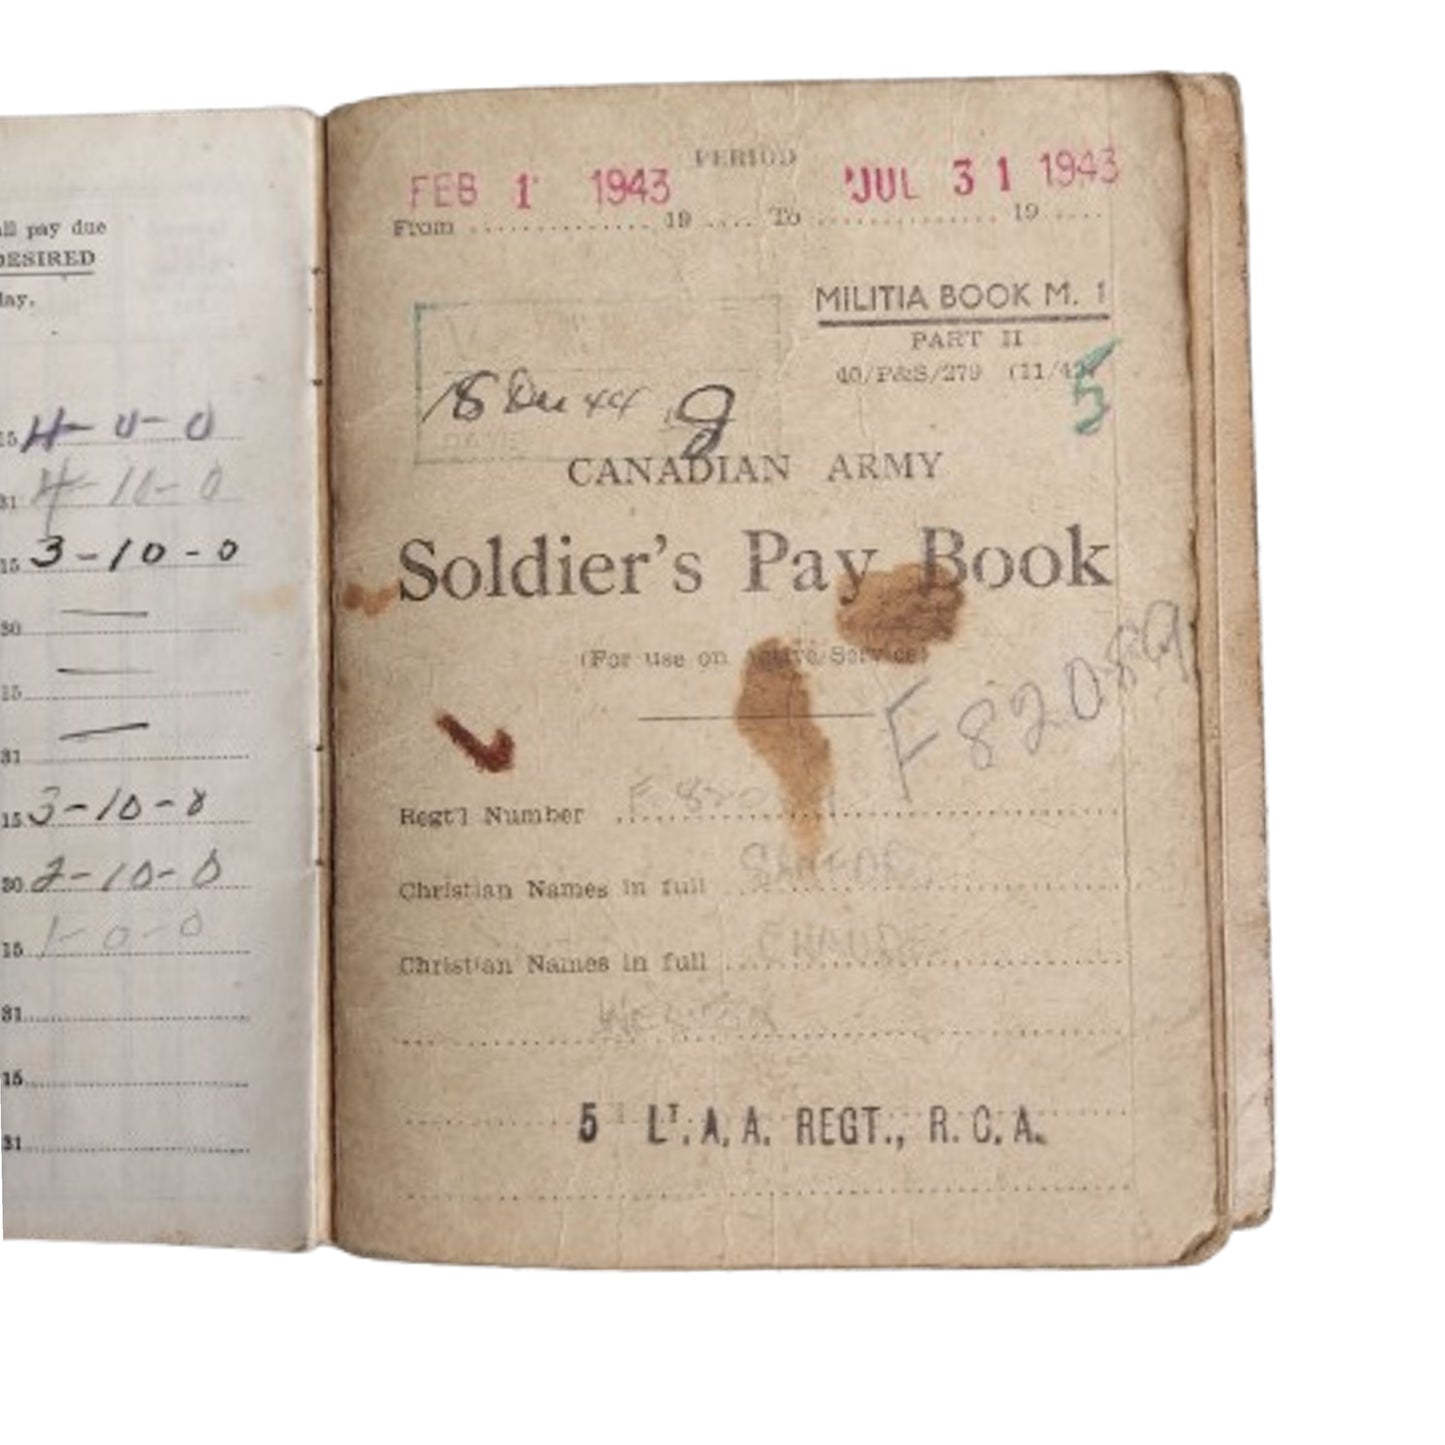 ll pay due
DESIRED
day.
15 4-0-0
31 4-10-0
15 3-10-0
30
15
31
15 3-10-0
30 2-10-0
15 1-0-0
31
15
31
PERIOD
FEB 1 1943 JUL 31 1943
From 19 To 19
MILITIA BOOK M. 1
PART II
40/P&S/279 (11/42)
5
44
CANADIAN ARMY
Soldier's Pay Book
(For use on Active Service)
F 82086
Regt'l Number F. 82
Christian Names in full
Christian Names in full
5 LT. A. A. REGT., R. C. A.